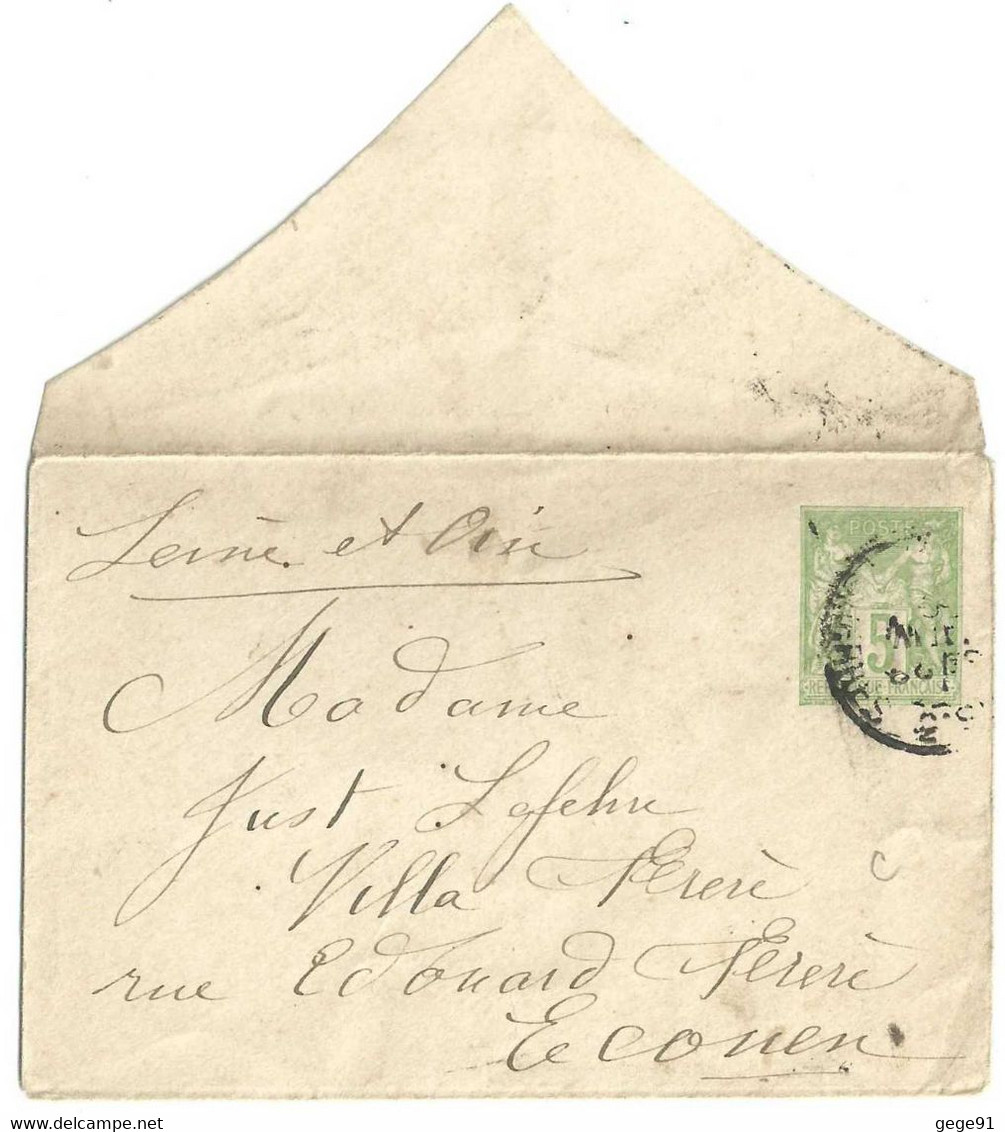 Seine et Oise
POSTE
5
REPUBLIQUE FRANÇAISE
Madame
Just Lefebvre
Villa Frère
rue Edouard Frère
Ecouen
gege91